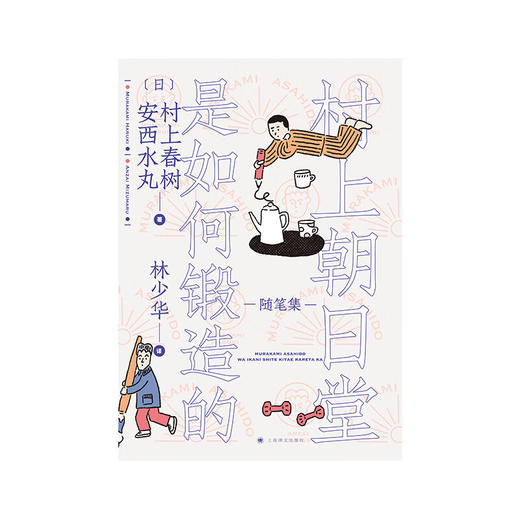 村上朝日堂
是如何锻造的
〔日〕
村上春树
安西水丸
著
MURAKAMI HARUKI
ANZAI MIZUMARU
林少华
译
随笔集
MURAKAMI ASAHIDO
WA IKANI SHITE KITAE RARETA KA
上海译文出版社
MURAKAMI
ASAHIDO